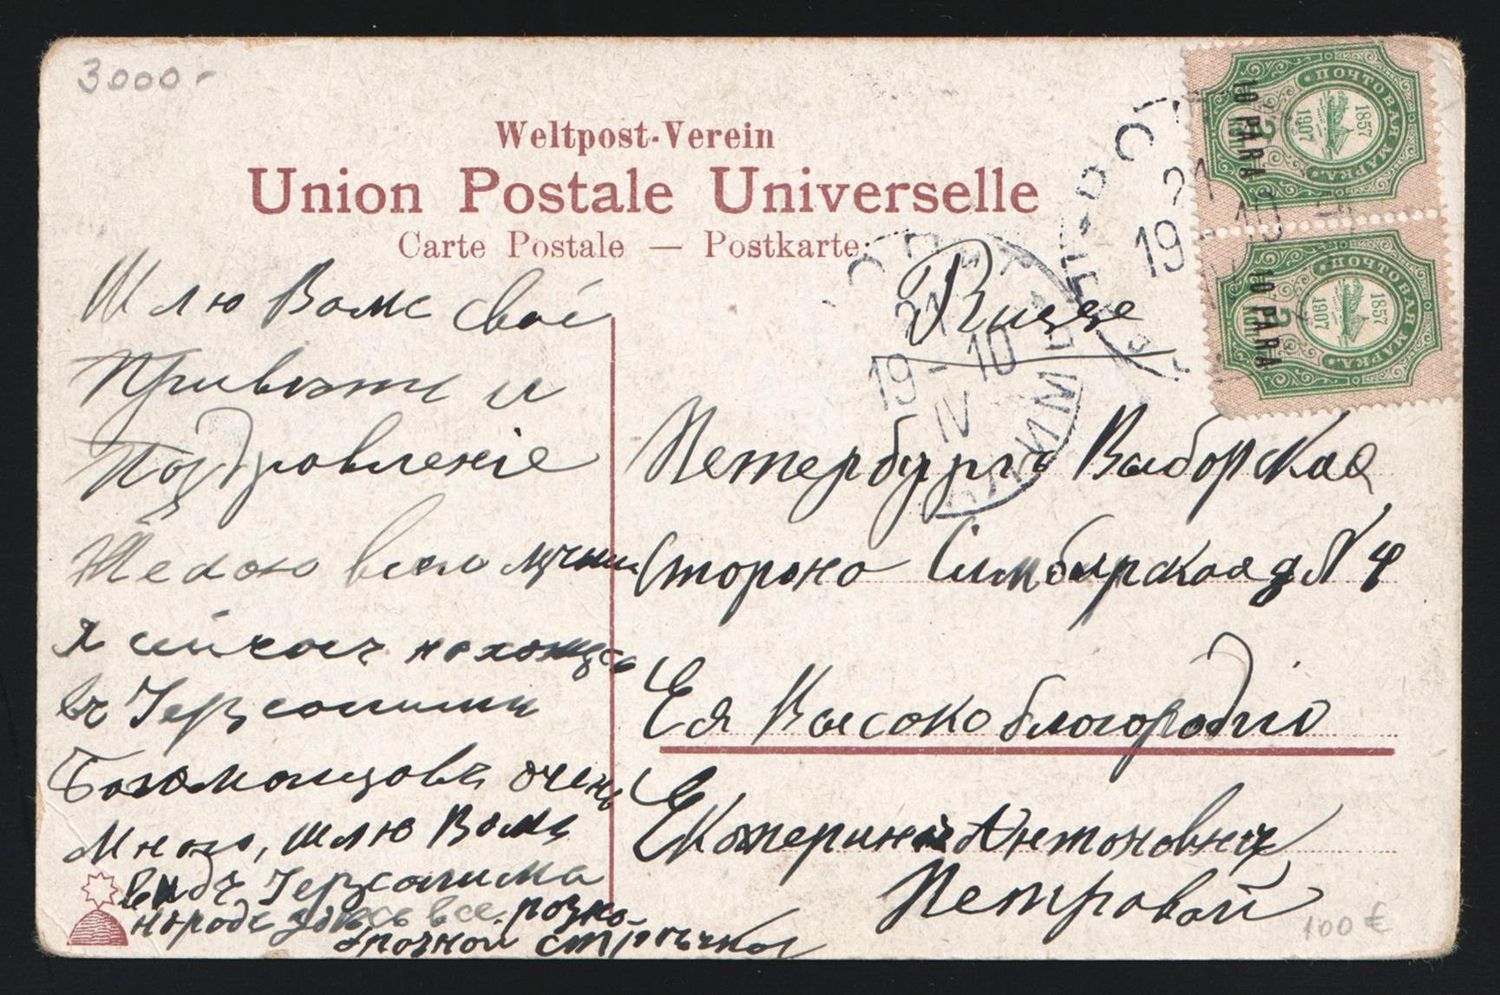 3000-
Weltpost-Verein
Union Postale Universelle
Carte Postale — Postkarte.
ПОЧТОВАЯ МАРКА
1857
1907
10 PARA
ПОЧТОВАЯ МАРКА
1857
1907
10 PARA
21
19 - 10
IV
21
19 - 10
Шлю Вамъ свои
Приветы и
Поздравленіе
Желаю всего лучши
Я сейчасъ нахожусь
въ Іерусалимѣ
Богомольцовъ очень
Много, шлю Вамъ
видъ Іерусалима
народъ здесь все разно-
Петербургъ Выборская
Сторона Симбирская д N 4
Ея Высокоблогородию
Екатеринѣ Антоновнѣ
Петровой
100 €